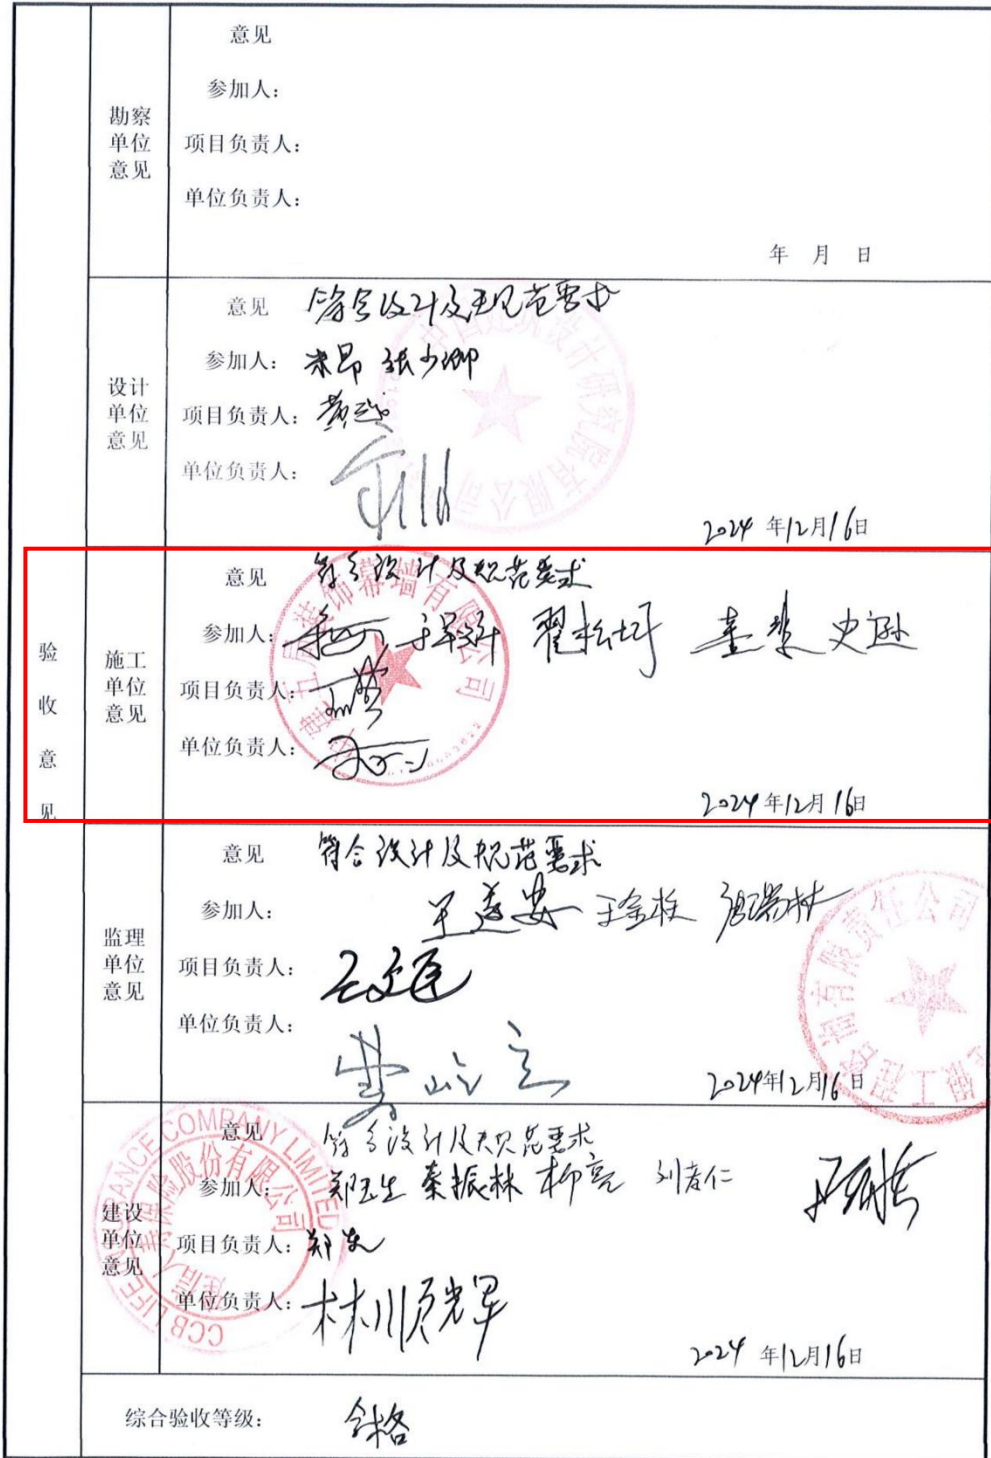 验收意见
勘察单位意见
意见
参加人：
项目负责人：
单位负责人：
年 月 日
设计单位意见
意见 符合设计及规范要求
参加人：米昂 张少卿
项目负责人：
单位负责人：
2024 年12月16日
施工单位意见
意见 符合设计及规范要求
参加人： 翟松圩 史逊
项目负责人：
单位负责人：
2024 年12月16日
监理单位意见
意见 符合设计及规范要求
参加人： 于金栋 唐瑞林
项目负责人：
单位负责人：
2024年12月16日
建设单位意见
意见 符合设计及规范要求
参加人：郑玉生 秦振林 柳亮 刘彦仁
项目负责人：
单位负责人：林顺辉
2024 年12月16日
综合验收等级： 合格
装饰幕墙有限公司
CCB LIFE INSURANCE COMPANY LIMITED
建信人寿保险股份有限公司